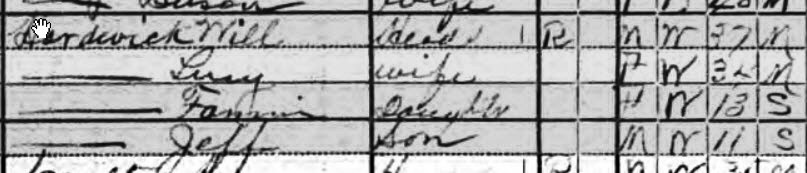 Susan wife
Hardwick Will Head 1 R M W 37 M
Lucy wife F W 34 M
Fannie Daughter F W 13 S
Jeff Son M W 11 S
R